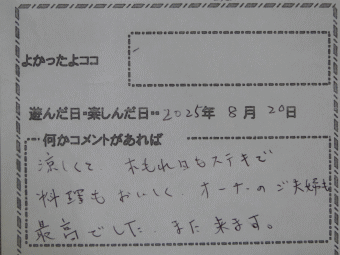 よかったよココ
遊んだ日・楽しんだ日・・2025年 8月 20日
…何かコメントがあれば
涼しくて 木もれ日もステキで
料理もおいしく オーナーのご夫婦も
最高でした。また来ます。